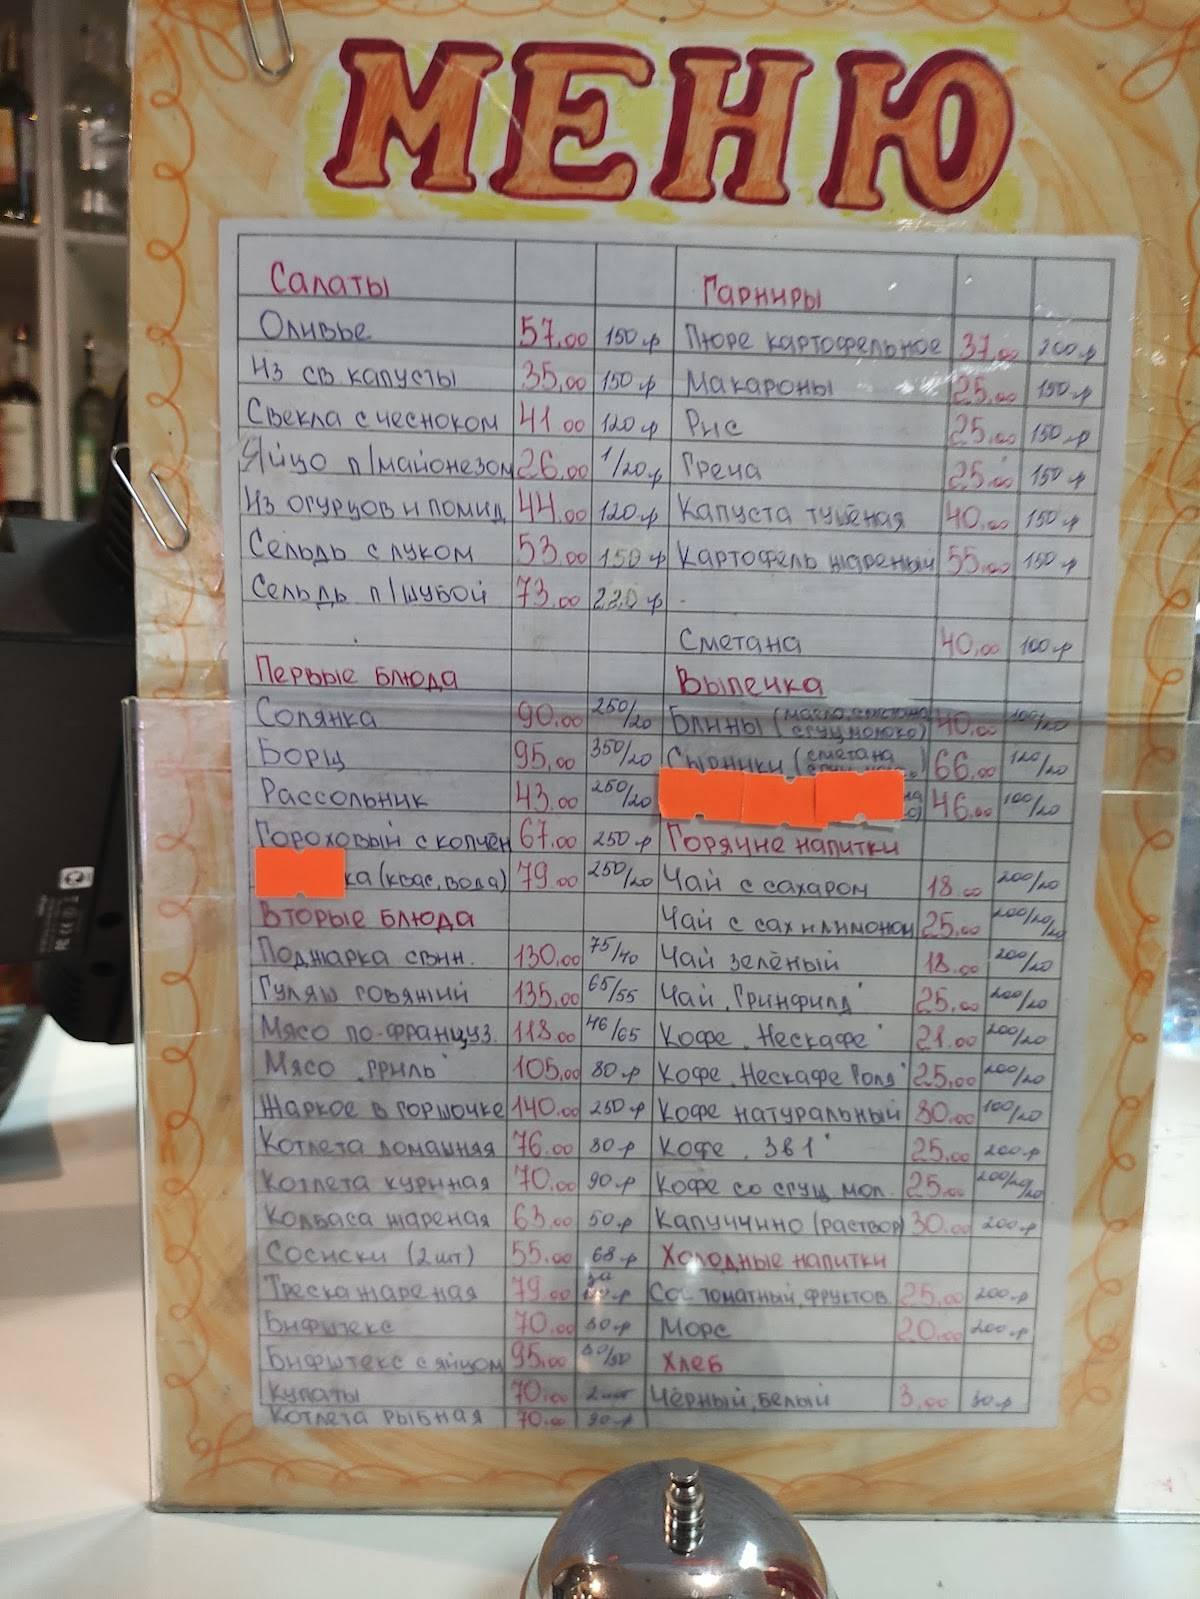 МЕНЮ
Салаты
Оливье 57.00 150 гр
Из св капусты 35.00 150 гр
Свекла с чесноком 41.00 120 гр
Яйцо п/майонезом 26.00 1/20 гр
Из огурцов и помид. 44.00 120 гр
Сельдь с луком 53.00 150 гр
Сельдь п/шубой 73.00 220 гр
Первые блюда
Солянка 90.00 250/20
Борщ 95.00 350/20
Рассольник 43.00 250/20
Гороховый с копчён 67.00 250 гр
ка (квас, вода) 79.00 250/20
Вторые блюда
Поджарка свин. 130.00 75/40
Гуляш говяжий 135.00 65/55
Мясо по-француз. 118.00 46/65
Мясо "гриль" 105.00 80 гр
Жаркое в горшочке 140.00 250 гр
Котлета домашняя 76.00 80 гр
Котлета куриная 70.00 90 гр
Колбаса жареная 63.00 50 гр
Сосиски (2 шт) 55.00 68 гр
Треска жареная 79.00
Бифштекс 70.00 80 гр
Бифштекс с яйцом 95.00
Купаты 70.00 2 шт
Котлета рыбная 70.00 90 гр
Гарниры
Пюре картофельное 37.00 200 гр
Макароны 25.00 150 гр
Рис 25.00 150 гр
Греча 25.00 150 гр
Капуста тушёная 40.00 150 гр
Картофель жареный 55.00 150 гр
Сметана 40.00 100 гр
Выпечка
Блины (масло, сметана
сгущ молоко) 40.00 100/20
Сырники (сметана
66.00 120/20
46.00 100/20
Горячие напитки
Чай с сахаром 18.00 200/20
Чай с сах и лимоном 25.00 200/20/20
Чай зелёный 18.00 200/20
Чай "Гринфилд" 25.00 200/20
Кофе "Нескафе" 21.00 200/20
Кофе "Нескафе Голд" 25.00 200/20
Кофе натуральный 80.00 100/20
Кофе "3в1" 25.00 200 гр
Кофе со сгущ мол. 25.00 200/20/20
Капуччино (раствор) 30.00 200 гр
Холодные напитки
Сок томатный, фруктов. 25.00 200 гр
Морс 20.00 200 гр
Хлеб
Чёрный, белый 3.00 30 гр